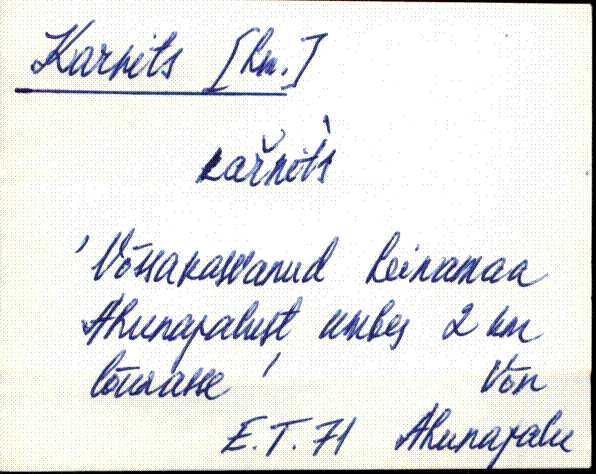 Karnits [hn.]
karnit's
'Võssakasvanud heinamaa
Ahunapalust umbes 2 km
lõunasse' Võn
E.T. 71 Ahunapalu